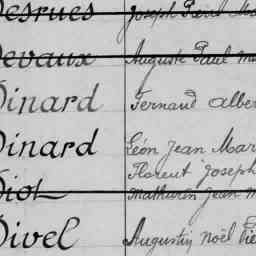 Desrues Joseph Pierre Ma
Devaux Auguste Paul Ma
Dinard Fernand Alber
Dinard Léon Jean Mar
Florent Joseph
Diot Mathurin Jean M
Divel Augustin Noël Vic